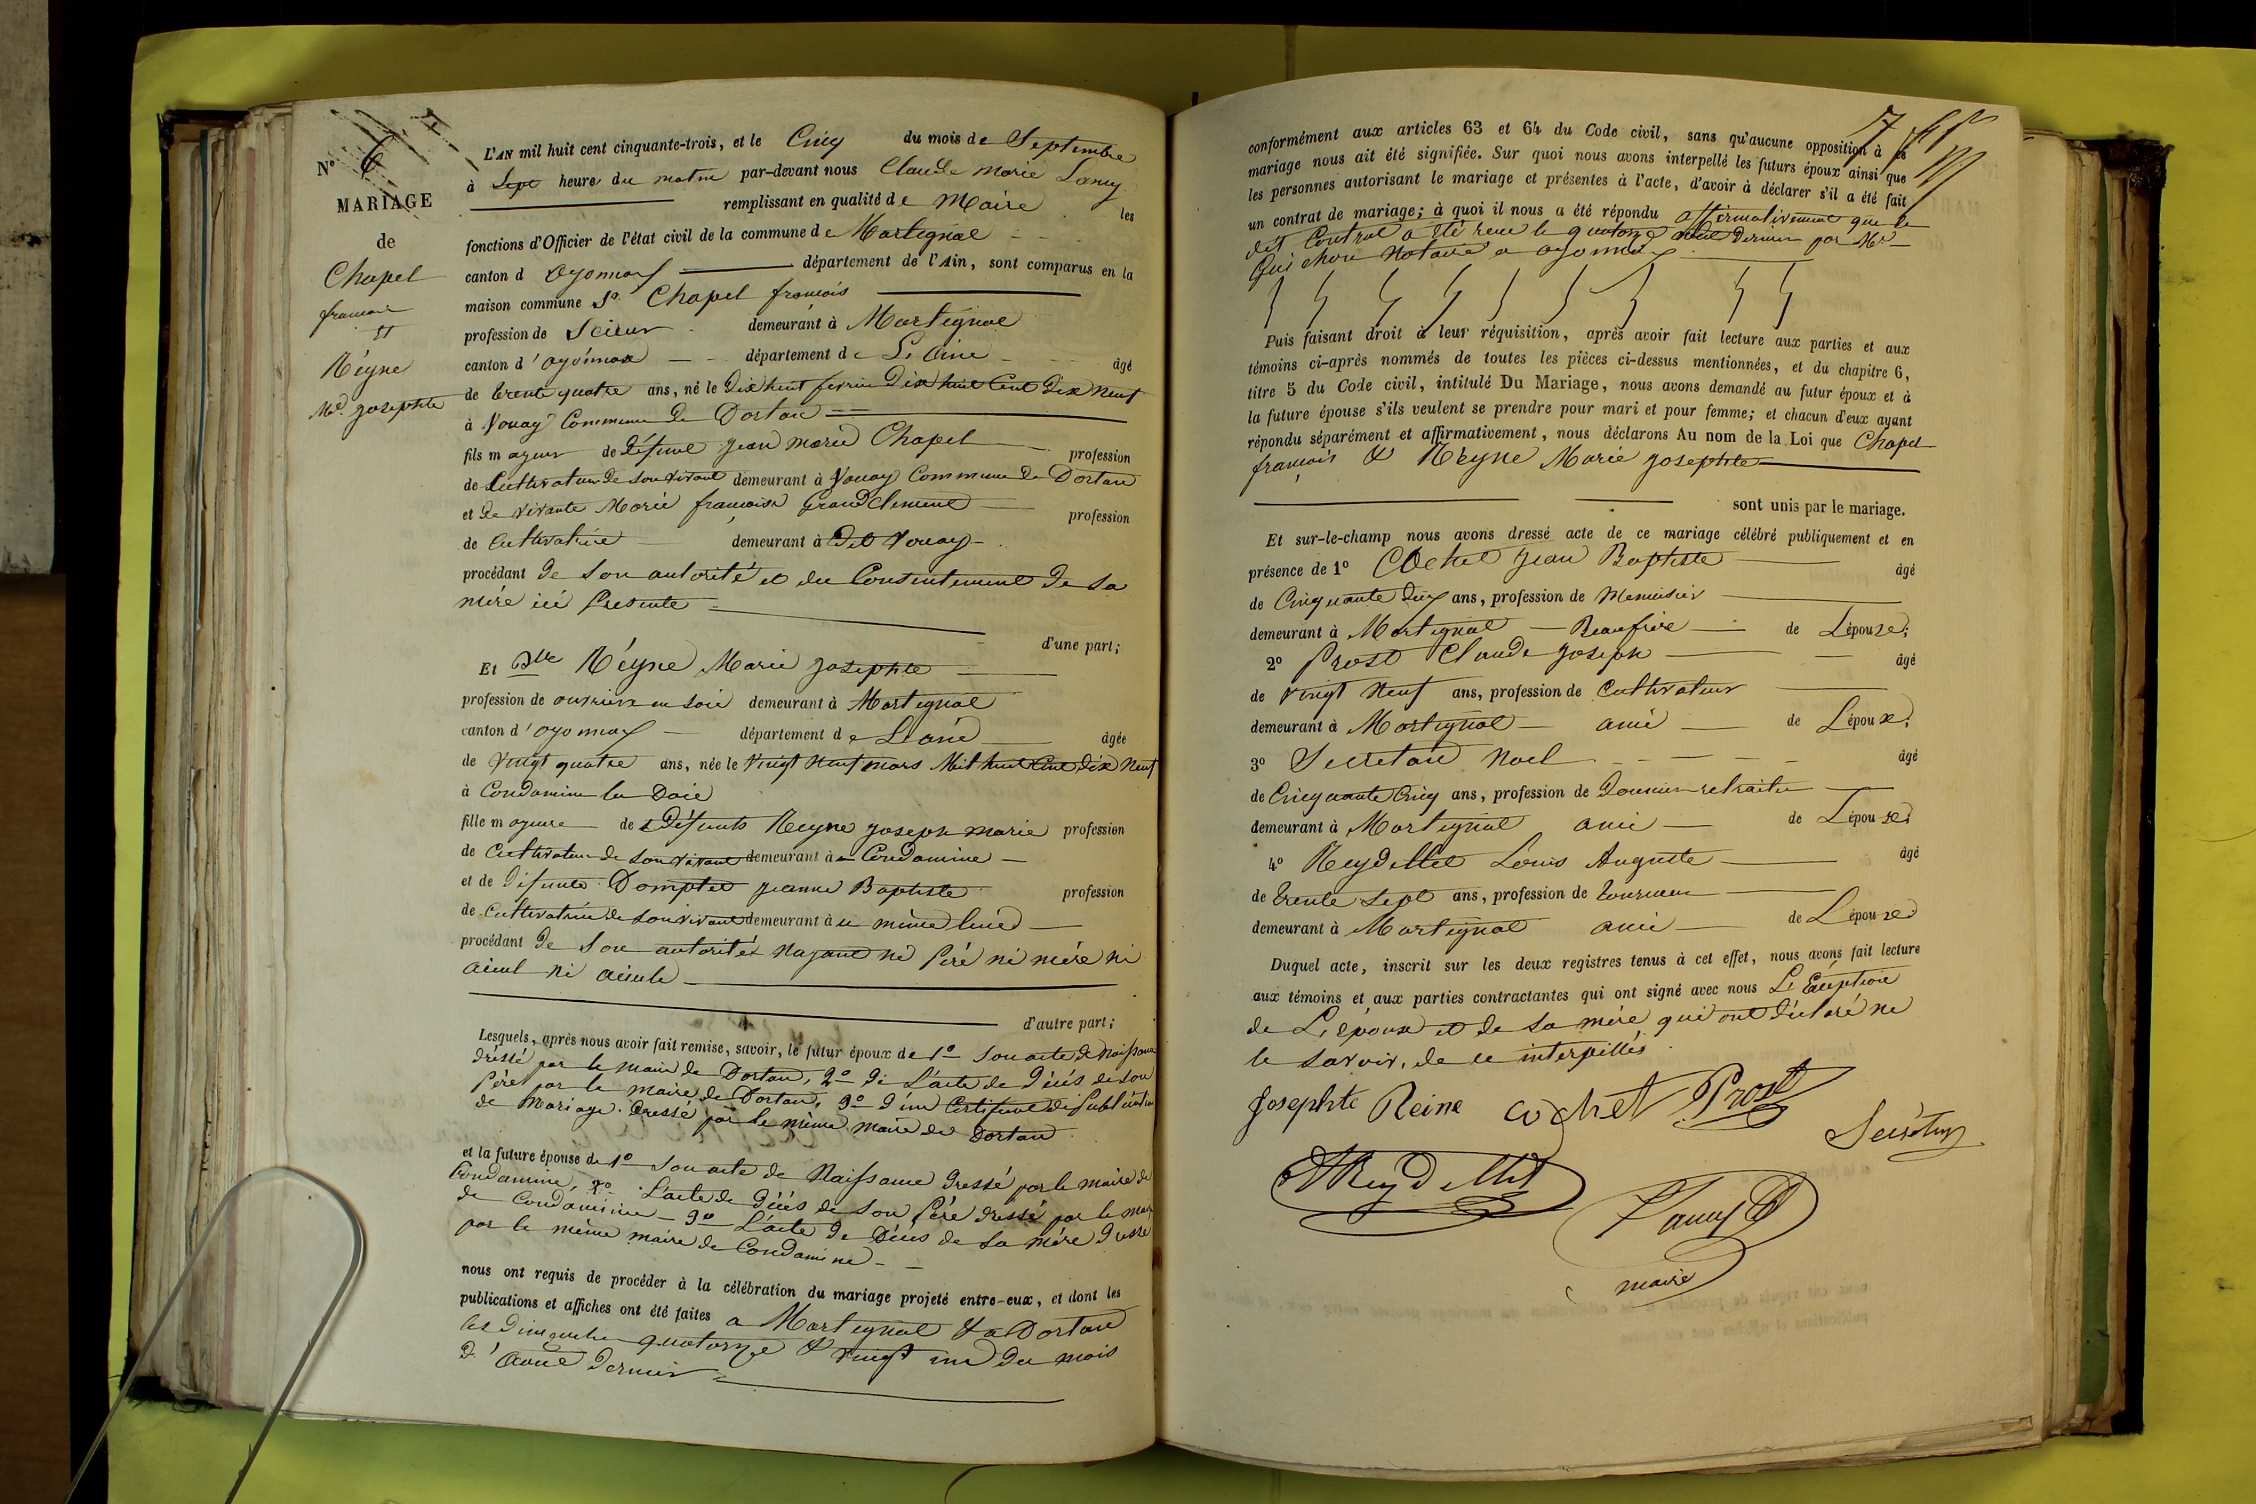 N° 6
MARIAGE
de
Chapel
francois
et
Réyne
Mie Josephte
L'AN mil huit cent cinquante-trois, et le Cinq du mois de Septembre
à Sept heure du matin par-devant nous Claude Marie Lancy
remplissant en qualité de Maire les
fonctions d'Officier de l'état civil de la commune de Martignat
canton d Oyonnax département de l'Ain, sont comparus en la
maison commune Sr Chapel francois
profession de Scieur demeurant à Martignat
canton d'oyonnax département de L'Ain âgé
de trente quatre ans, né le Dix huit fevrier Dix huit Cent Dix Neuf
à Vouay Commune de Dortan
fils majeur de défunt Jean marie Chapel profession
de Cultivateur de Son vivant demeurant à Vouay Commune de Dortan
et de vivante Marie francoise GrandClement profession
de Cultivatrice demeurant à dit Vouay
procédant de Son autorité et du Consentement de Sa
mère ici presente
d'une part;
Et Dlle Réyne Marie Josephte
profession de ouvriere en Soie demeurant à Martignat
canton d'oyonnax département de L'ain âgée
de Vingt quatre ans, née le Vingt Neuf mars Mil huit Cent Dix Neuf
à Condamine la Doie
fille majeure de Défunts Reyne Joseph marie profession
de Cultivateur de Son vivant demeurant à Condamine
et de Défunte Domptet Jeanne Baptiste profession
de Cultivatrice de Son vivant demeurant à u même lieu
procédant de Son autorité nayant ni Père ni mère ni
aieul ni aieule
d'autre part;
Lesquels, après nous avoir fait remise, savoir, le futur époux de 1° Son acte de Naissance
dressé par le maire de Dortan, 2° de L'acte de Décés de Son
Père par le maire de Dortan, 3° d'un Certificat de Publication
de Mariage Dressé par le même maire de Dortan
et la future épouse de 1° Son acte de Naissance dressé par le maire de
Condamine, 2° L'acte de Décés de Son Père dressé par le maire
de Condamine 3° L'acte de Décés de Sa Mère dressé
par le même maire de Condamine
nous ont requis de procéder à la célébration du mariage projeté entre-eux, et dont les
publications et affiches ont été faites a Martignat & a Dortan
les Dimanches quatorze & vingt un du mois
d'Aout dernier
7
conformément aux articles 63 et 64 du Code civil, sans qu'aucune opposition à ce
mariage nous ait été signifiée. Sur quoi nous avons interpellé les futurs époux ainsi que
les personnes autorisant le mariage et présentes à l'acte, d'avoir à déclarer s'il a été fait
un contrat de mariage; à quoi il nous a été répondu affirmativement que le
dit Contrat a été recu le quatorze Aout Dernier par Mr
Guichon Notaire a oyonnax
Puis faisant droit à leur réquisition, après avoir fait lecture aux parties et aux
témoins ci-après nommés de toutes les pièces ci-dessus mentionnées, et du chapitre 6,
titre 5 du Code civil, intitulé Du Mariage, nous avons demandé au futur époux et à
la future épouse s'ils veulent se prendre pour mari et pour femme; et chacun d'eux ayant
répondu séparément et affirmativement, nous déclarons Au nom de la Loi que Chapel
francois & Reyne Marie Josephte
sont unis par le mariage.
Et sur-le-champ nous avons dressé acte de ce mariage célébré publiquement et en
présence de 1° Cochet Jean Baptiste âgé
de Cinquante Deux ans, profession de Menuisier
demeurant à Martignat Beaufrère de L'épouse;
2° Prost Claude Joseph âgé
de vingt Neuf ans, profession de Cultivateur
demeurant à Martignat ami de L'époux;
3° Secretan Noel âgé
de Cinquante Cinq ans, profession de Douanier retraité
demeurant à Martignat ami de L'épouse;
4° Reydellet Louis Auguste âgé
de trente Sept ans, profession de tourneur
demeurant à Martignat ami de L'épouse
Duquel acte, inscrit sur les deux registres tenus à cet effet, nous avons fait lecture
aux témoins et aux parties contractantes qui ont signé avec nous L'Exception
de L'époux et de Sa mère qui ont déclaré ne
le Savoir, de ce interpellés
Josephte Reine cochet Prost
Secretan
AReydellet
Lancy
maire